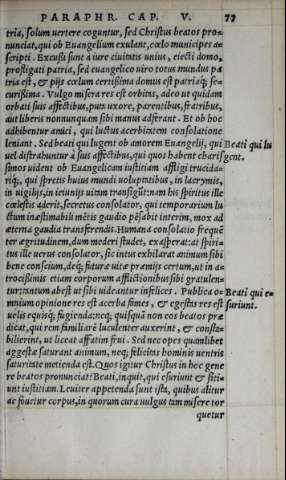 PARAPHR. CAP. V. 77
tria, solum uertere coguntur, sed Christus beatos pro=
nunciat, qui ob Euangelium exulant, cœlo municipes a=
scripti. Excusi sunt à iure ciuitatis unius, eiecti domo,
profligati patria, sed euangelico uiro totus mundus pa
tria est, & pijs cœlum certissima domus est patriaq́; se=
curissima. Vulgo misera res est orbitas, adeo ut quidam
orbati suis affectibus, puta uxore, parentibus, fratribus,
aut liberis nonnunquam sibi manus adferant. Et ob hoc
adhibentur amici, qui luctus acerbitatem consolatione
leniant. Sed beati qui lugent ob amorem Euangelij, qui
Beati qui lu
uel distrahuntur à suis affectibus, qui quos habent charis
gent.
simos uident ob Euangelicam iustitiam affligi trucida=
riq́;, qui spretis huius mundi uoluptatibus, in lacrymis,
in uigilijs, in ieiunijs uitam transigūt: nam his spiritus ille
cœlestis aderit, secretus consolator, qui temporarium lu
ctum inæstimabili mētis gaudio pēsabit interim, mox ad
æterna gaudia transferendis. Humana consolatio frequē
ter ægritudinem, dum mederi studet, exasperat: at spiri=
tus ille uerus consolator, sic intus exhilarat animum sibi
bene conscium, deq́; futuræ uitæ præmijs certum, ut in a=
trocissimis etiam corporum afflictionibus sibi gratulen=
tur: tantum abest ut sibi uideantur infelices. Publica o=
Beati qui e=
mnium opinione res est acerba fames, & egestas res est
suriunt.
uelis equisq́; fugienda: neq́; quisquā non eos beatos præ
dicat, qui rem familiarē luculenter auxerint, & consta=
bilierint, ut liceat affatim frui. Sed nec opes quamlibet
aggestæ saturant animum, neq́; felicitas hominis uentris
saturitate metienda est. Quos igitur Christus in hoc gene
re beatos pronunciat? Beati, inquit, qui esuriunt & siti=
unt iustitiam. Leuiter appetenda sunt ista, quibus alitur
ac fouetur corpus, in quorum cura uulgus tam misere tor
quetur